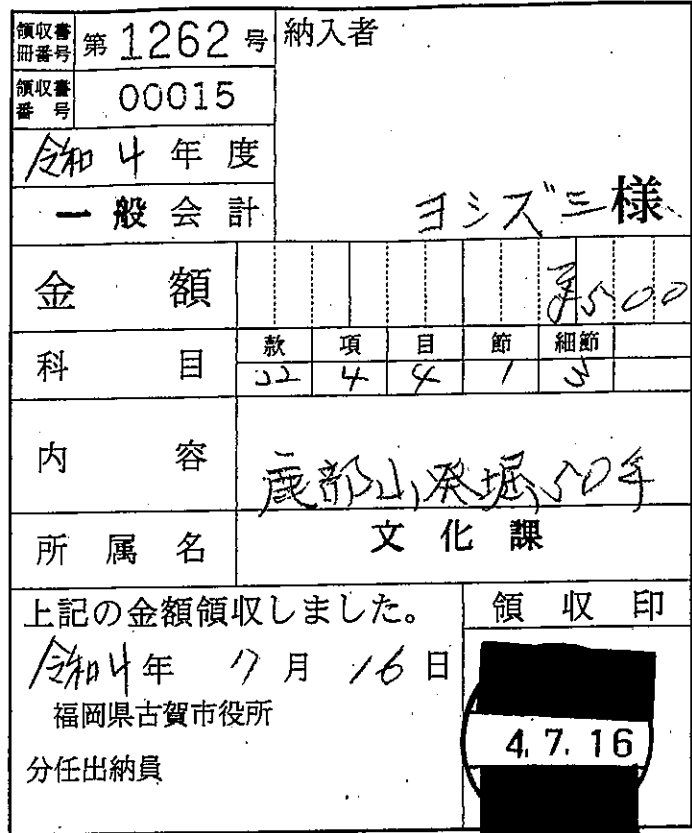 領収書冊番号 第 1262 号 納入者
領収書番号 00015
令和 4 年 度
一 般 会 計
ヨシズミ 様
金 額 ¥500
科 目 款 項 目 節 細節
22 4 4 1 3
内 容 鹿部山発掘50年
所 属 名 文 化 課
上記の金額領収しました。 領 収 印
令和4年 7月 16日
福岡県古賀市役所
分任出納員
4.7.16